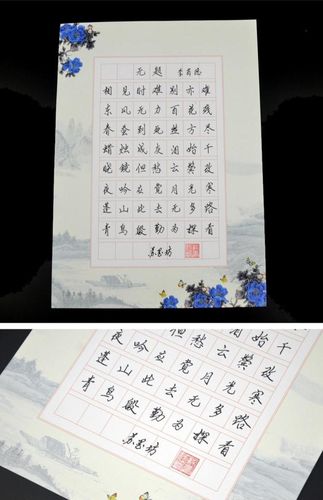 无题 李商隐
相见时难别亦难
东风无力百花残
春蚕到死丝方尽
蜡炬成灰泪始干
晓镜但愁云鬓改
夜吟应觉月光寒
蓬山此去无多路
青鸟殷勤为探看
始干
但愁云鬓改
夜吟应觉月光寒
蓬山此去无多路
青鸟殷勤为探看